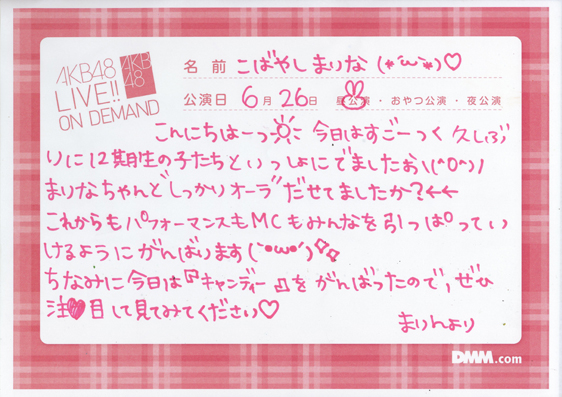 AKB48
LIVE!!
ON DEMAND
AKB
48
名前 こばやしまりな (*´ω`*)♡
公演日 6月26日 昼公演・おやつ公演・夜公演
こんにちはーっ☼ 今日はすごーっく久しぶ
りに12期生の子たちといっしょにでましたお\(^O^)/
まりなちゃんとしっかりオーラだせてましたか?←←
これからもパフォーマンスもMCもみんなを引っぱってい
けるようにがんばります(`•ω•´)✧
ちなみに今日は『キャンディー』をがんばったので、ぜひ
注♥目して見てみてください♡
まりんより
DMM.com